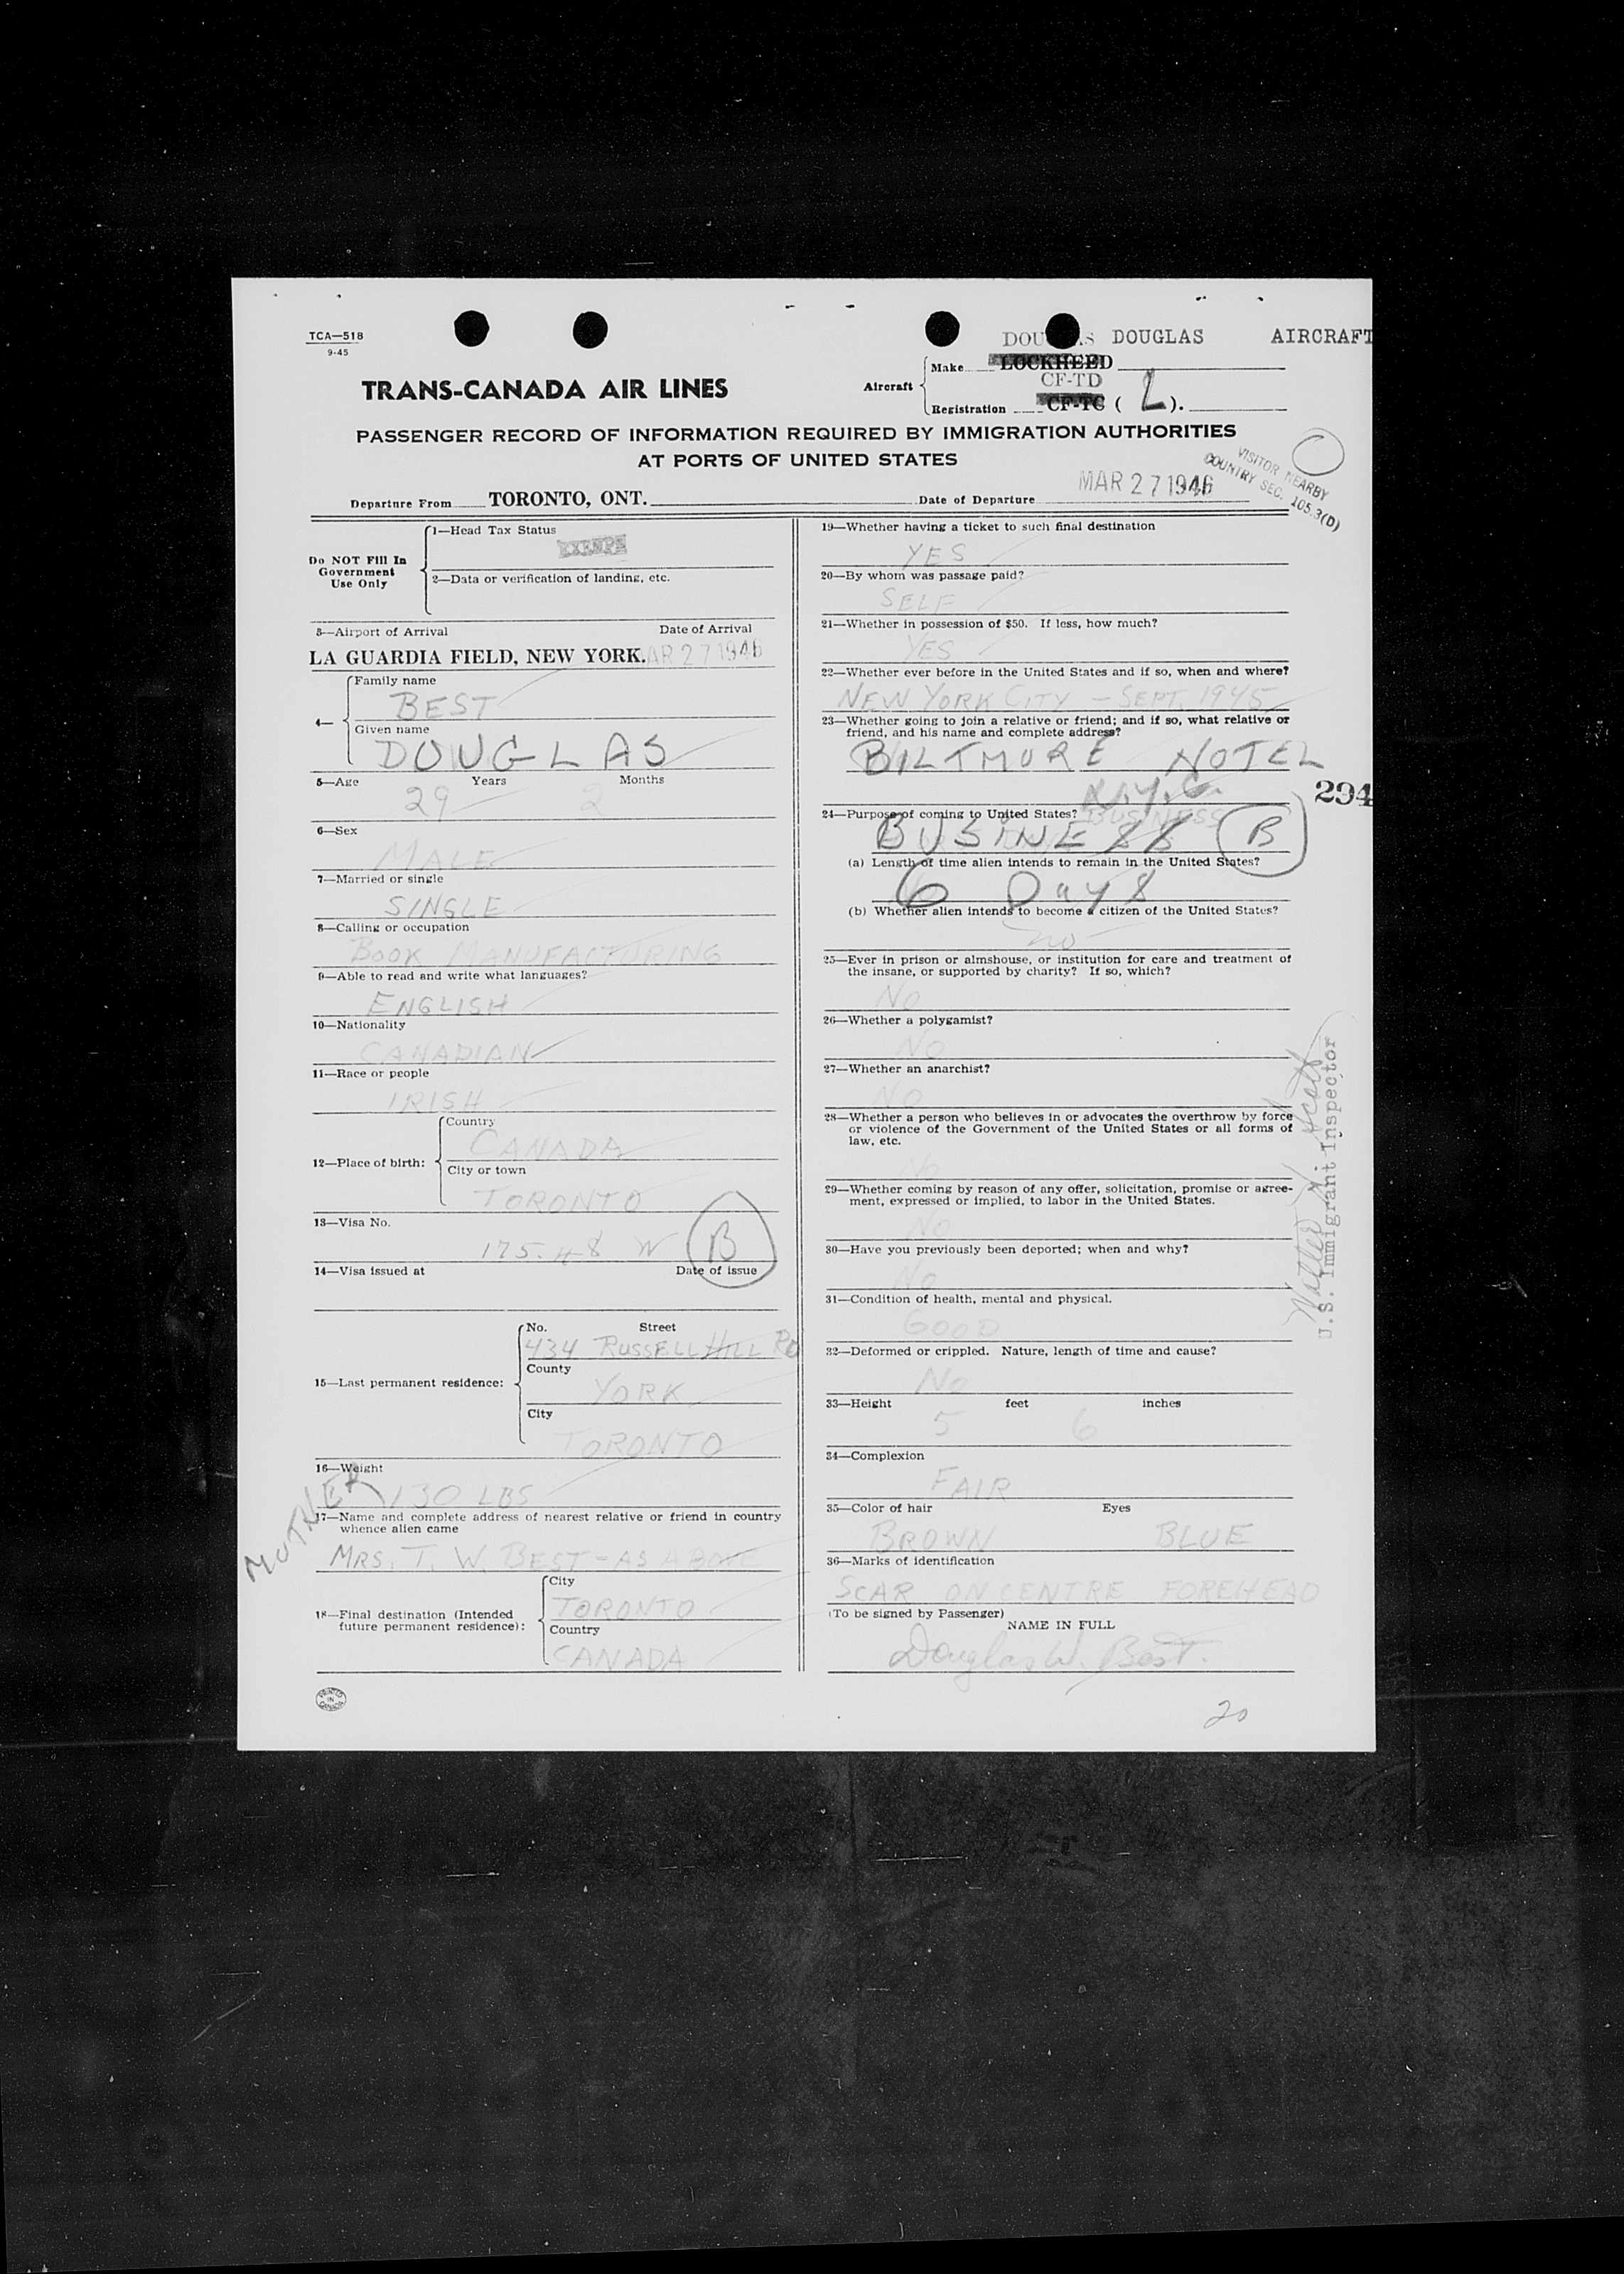 TCA—518
9-45
DOUGLAS DOUGLAS AIRCRAFT
Make LOCKHEED
TRANS-CANADA AIR LINES
Aircraft
CF-TD
Registration CF-TC ( L ).
PASSENGER RECORD OF INFORMATION REQUIRED BY IMMIGRATION AUTHORITIES
AT PORTS OF UNITED STATES
VISITOR NEARBY
COUNTRY SEC. 105.3(D)
Departure From TORONTO, ONT. Date of Departure MAR 27 1946
Do NOT Fill In
Government
Use Only
1—Head Tax Status
EXEMPT
2—Data or verification of landing, etc.
3—Airport of Arrival Date of Arrival
LA GUARDIA FIELD, NEW YORK. AR 27 1946
4—
Family name
BEST
Given name
DOUGLAS
5—Age Years Months
29 2
6—Sex
MALE
7—Married or single
SINGLE
8—Calling or occupation
BOOK MANUFACTURING
9—Able to read and write what languages?
ENGLISH
10—Nationality
CANADIAN
11—Race or people
IRISH
12—Place of birth:
Country
CANADA
City or town
TORONTO
13—Visa No.
175.48 W B
14—Visa issued at Date of issue
15—Last permanent residence:
No. Street
434 RUSSELL HILL RD
County
YORK
City
TORONTO
16—Weight
130 LBS
MOTHER
17—Name and complete address of nearest relative or friend in country
whence alien came
MRS. T. W. BEST - AS ABOVE
18—Final destination (Intended
future permanent residence):
City
TORONTO
Country
CANADA
PRINTED
IN
CANADA
19—Whether having a ticket to such final destination
YES
20—By whom was passage paid?
SELF
21—Whether in possession of $50. If less, how much?
YES
22—Whether ever before in the United States and if so, when and where?
NEW YORK CITY - SEPT. 1945
23—Whether going to join a relative or friend; and if so, what relative or
friend, and his name and complete address?
BILTMORE HOTEL
N.Y.C.
294
24—Purpose of coming to United States? BUSINESS
BUSINESS B
(a) Length of time alien intends to remain in the United States?
6 Days
(b) Whether alien intends to become a citizen of the United States?
NO
25—Ever in prison or almshouse, or institution for care and treatment of
the insane, or supported by charity? If so, which?
NO
26—Whether a polygamist?
NO
27—Whether an anarchist?
NO
28—Whether a person who believes in or advocates the overthrow by force
or violence of the Government of the United States or all forms of
law, etc.
No
29—Whether coming by reason of any offer, solicitation, promise or agree-
ment, expressed or implied, to labor in the United States.
No
30—Have you previously been deported; when and why?
No
31—Condition of health, mental and physical.
GOOD
32—Deformed or crippled. Nature, length of time and cause?
No
33—Height feet inches
5 6
34—Complexion
FAIR
35—Color of hair Eyes
BROWN BLUE
36—Marks of identification
SCAR ON CENTRE FOREHEAD
(To be signed by Passenger)
NAME IN FULL
Douglas W. Best.
20
U.S. Immigrant Inspector